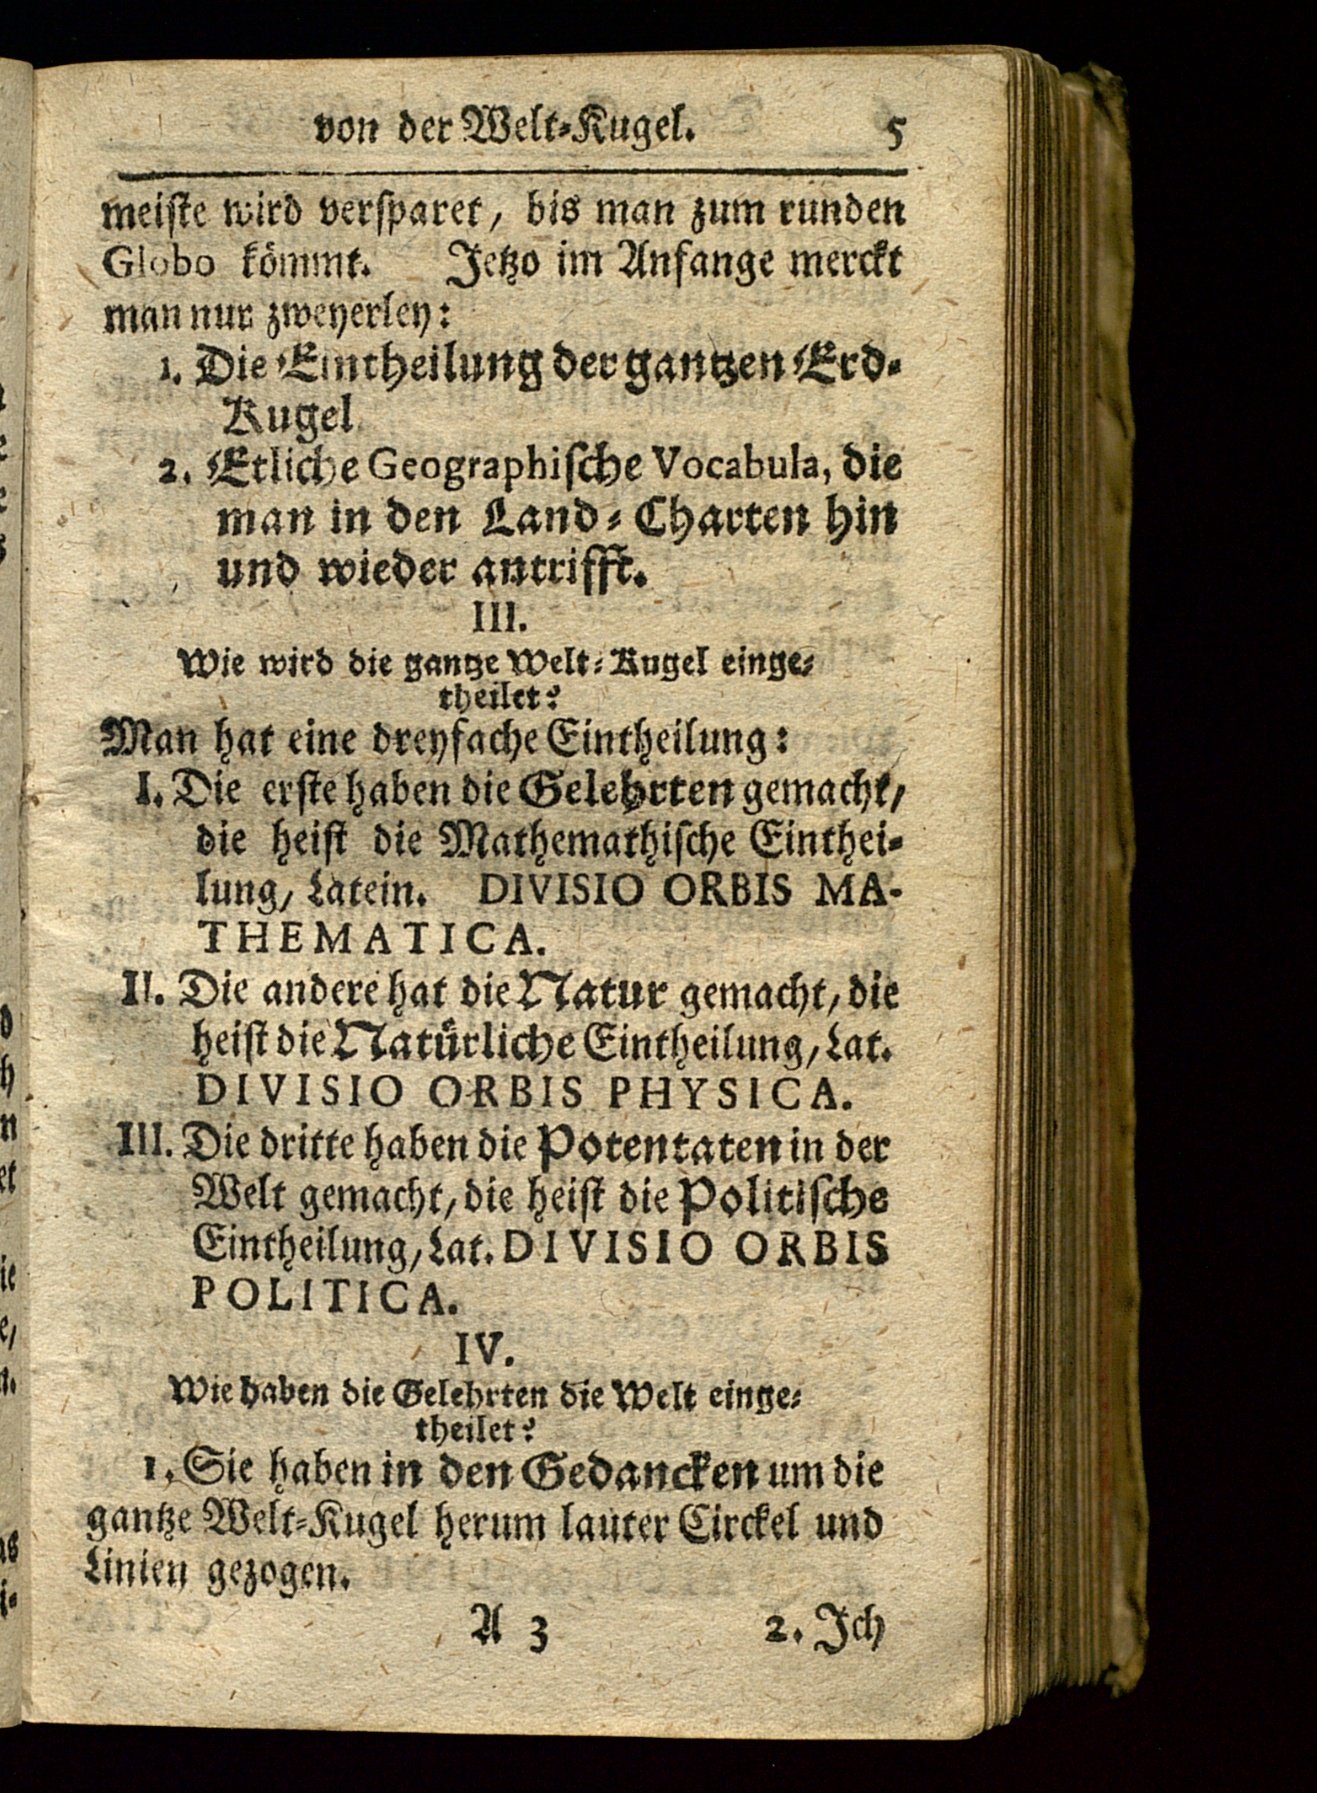 von der Welt-Kugel. 5
meiste wird versparet, bis man zum runden
Globo kömmt. Jetzo im Anfange merckt
man nur zweyerley:
1. Die Eintheilung der gantzen Erd-
Kugel
2. Etliche Geographische Vocabula, die
man in den Land-Charten hin
und wieder antrifft.
III.
Wie wird die gantze Welt-Kugel einge-
theilet?
Man hat eine dreyfache Eintheilung:
I. Die erste haben die Gelehrten gemacht,
die heist die Mathemathische Einthei-
lung, Latein. DIVISIO ORBIS MA-
THEMATICA.
II. Die andere hat die Natur gemacht, die
heist die Natürliche Eintheilung, Lat.
DIVISIO ORBIS PHYSICA.
III. Die dritte haben die Potentaten in der
Welt gemacht, die heist die Politische
Eintheilung, Lat. DIVISIO ORBIS
POLITICA.
IV.
Wie haben die Gelehrten die Welt einge-
theilet?
1. Sie haben in den Gedancken um die
gantze Welt-Kugel herum lauter Circkel und
Linien gezogen.
A 3 2. Jch